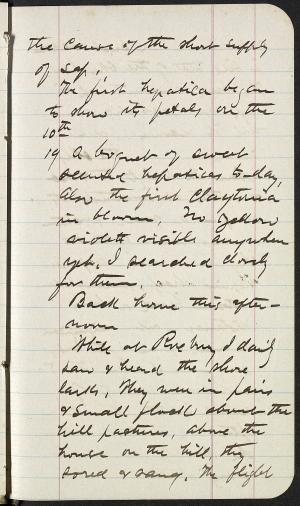 the cause of the short supply
of sap.
The first hepatica began
to show its petals on the
10th
19 A boquet of sweet
scented hepaticas to-day,
also the first Claytonia
in bloom. No yellow
violets visible anywhere
yet. I searched closely
for them.
Back home this after-
noon
While at Roxbury I daily
saw & heard the shore
larks. They were in pairs
& small flocks about the
hill pastures, above the
house on the hill they
sored & sang. The flight